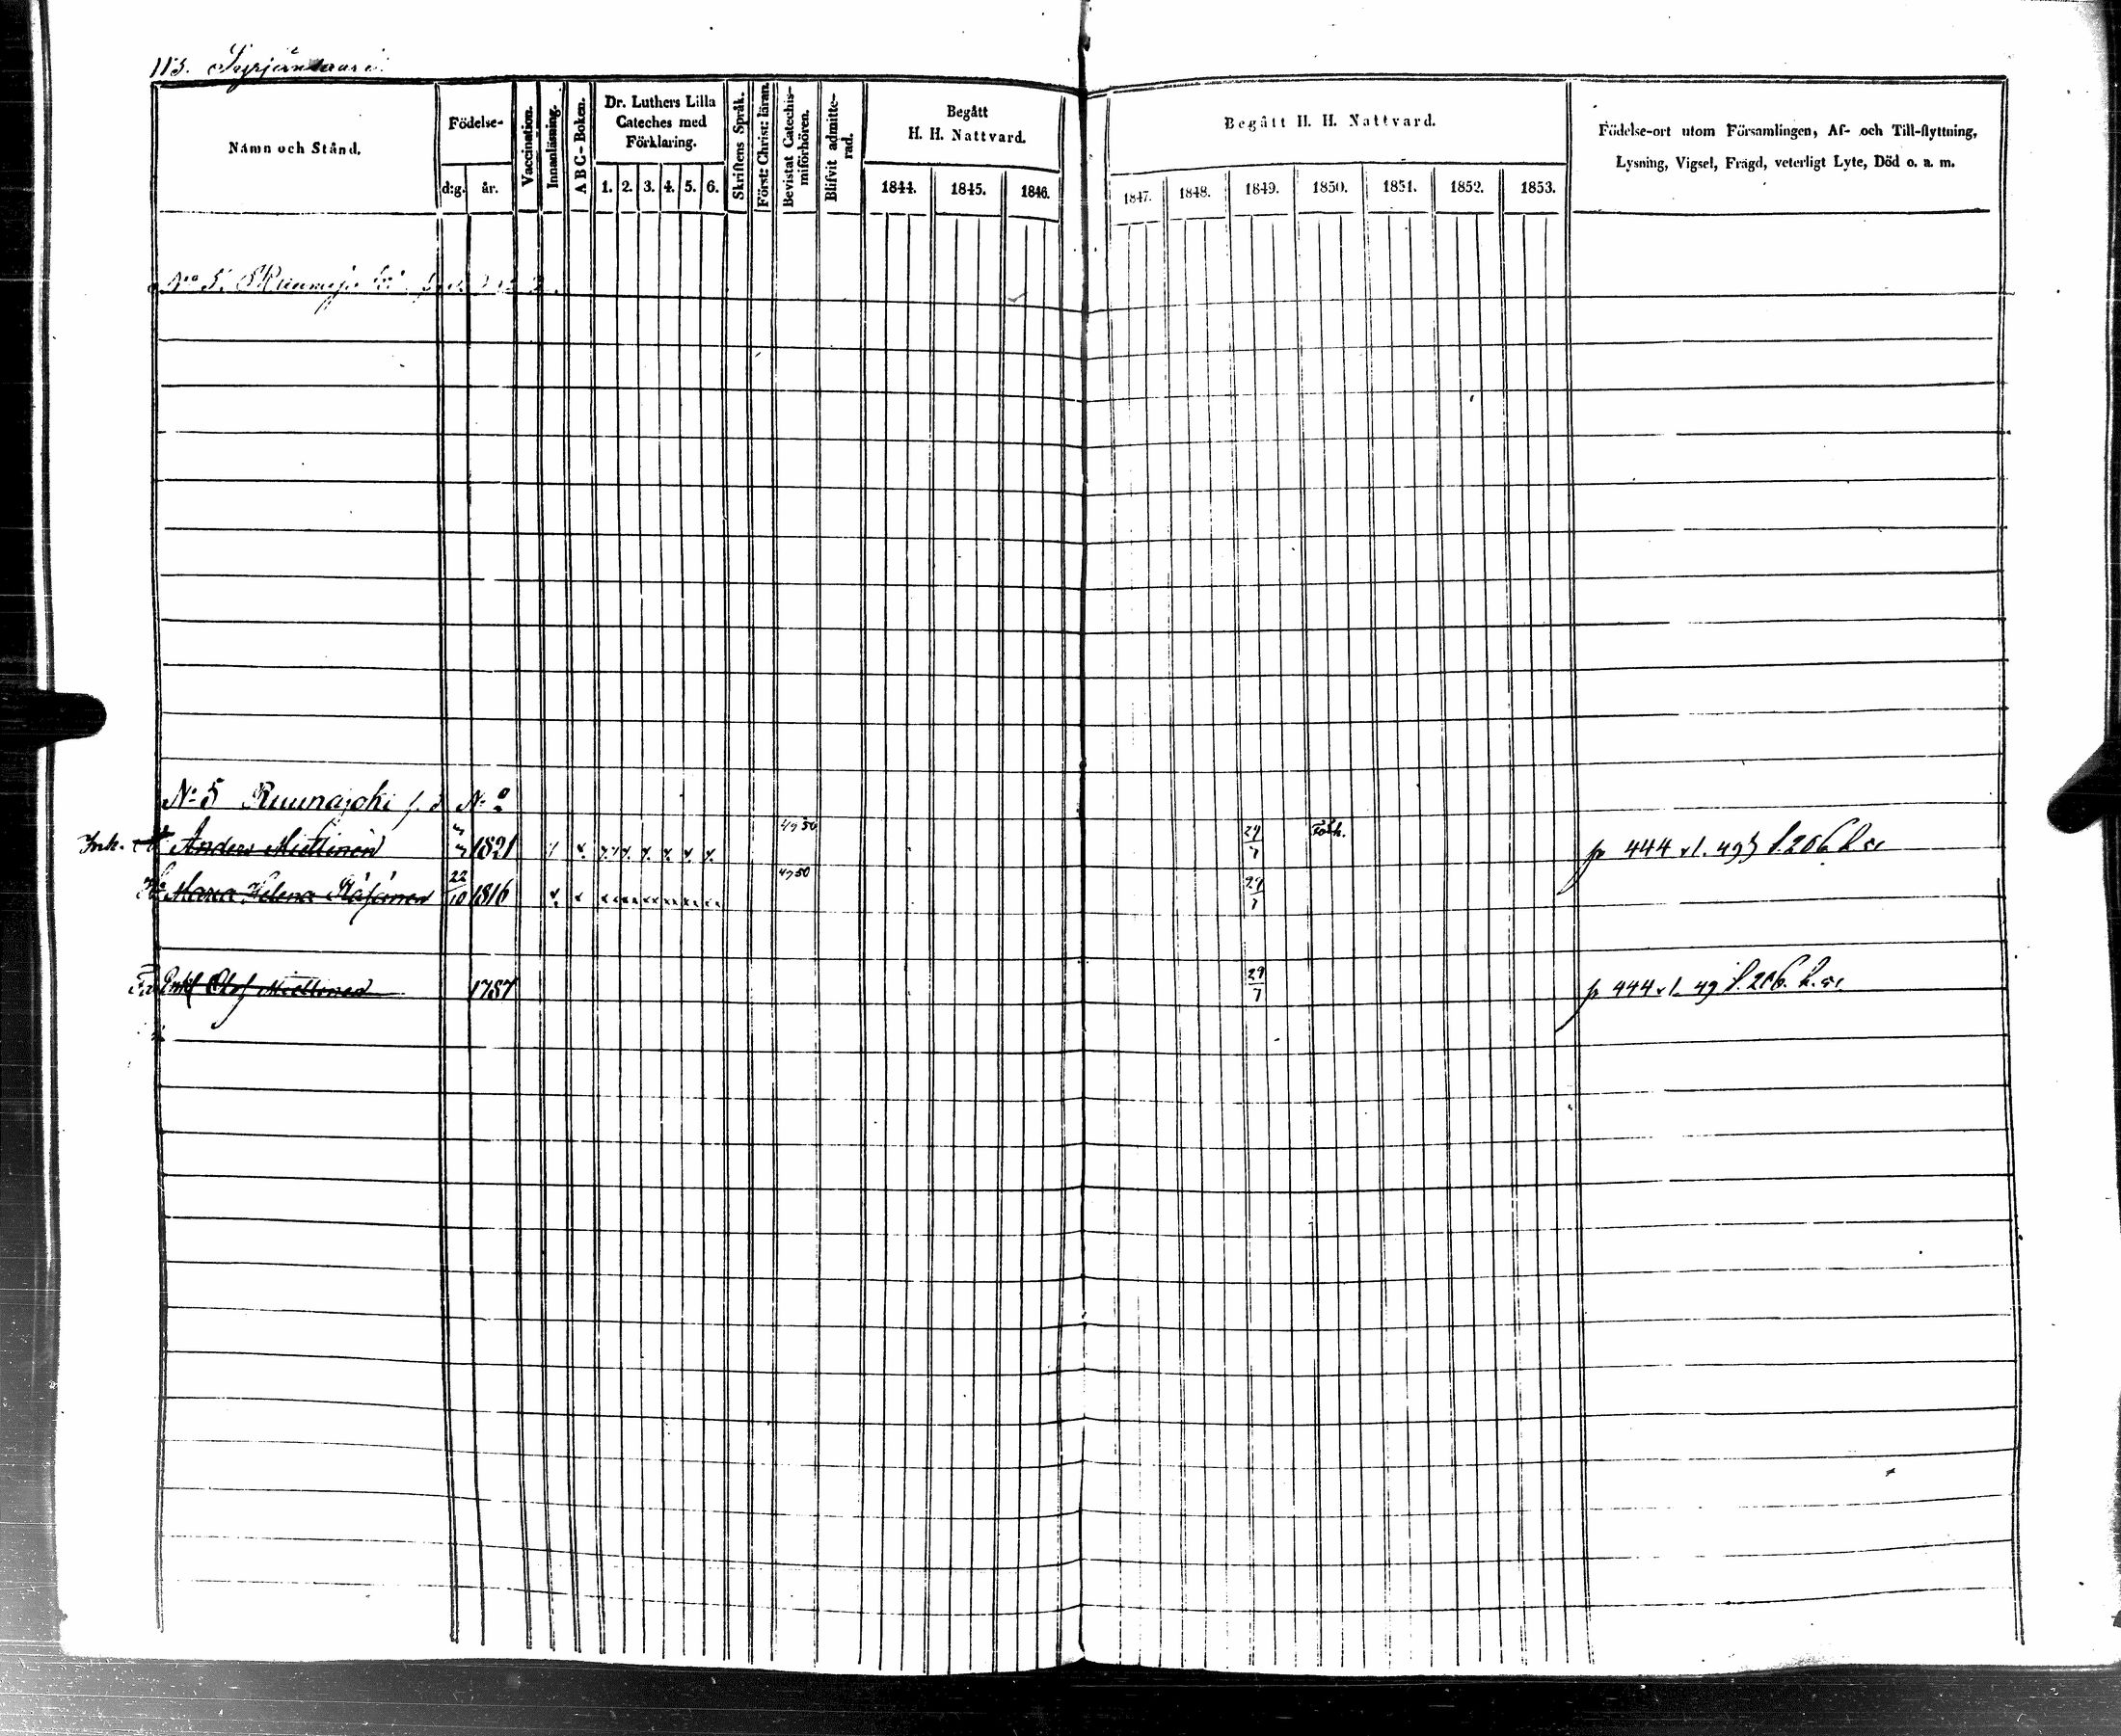 113. Syrjänvaara
Nämn och Stånd.
Födelse-
d:g. år.
Vaccination.
Innanläsning.
A B C-Boken.
Dr. Luthers Lilla
Cateches med
Förklaring.
1. 2. 3. 4. 5. 6.
Skriftens Språk.
Först: Christ: läran.
Bevistat Catechis-
miförhören.
Blifvit admitte-
rad.
Begått
H. H. Nattvard.
1844. 1845. 1846.
Begått H. H. Nattvard.
1847. 1848. 1849. 1850. 1851. 1852. 1853.
Födelse-ort utom Församlingen, Af- och Till-flyttning,
Lysning, Vigsel, Frägd, veterligt Lyte, Död o. a. m.
No 5.
No 5 Ruunajoki
Inh. Anders Miettinen 1821 49 50 29/7 p 444 v l. 49
Maria Helena 22/10 1816 49 50 29/7
Enkl Olof Miettinen 1787 29/7 p 444 v l. 49